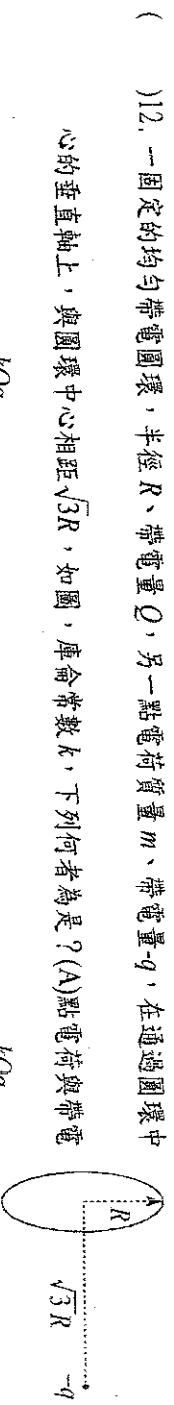 ( )12. 一固定的均勻帶電圓環，半徑 R、帶電量 Q，另一點電荷質量 m、帶電量-q，在通過圓環中
心的垂直軸上，與圓環中心相距√3R，如圖，庫侖常數 k，下列何者為是？(A)點電荷與帶電
R
√3R
-q
kQq
kQq